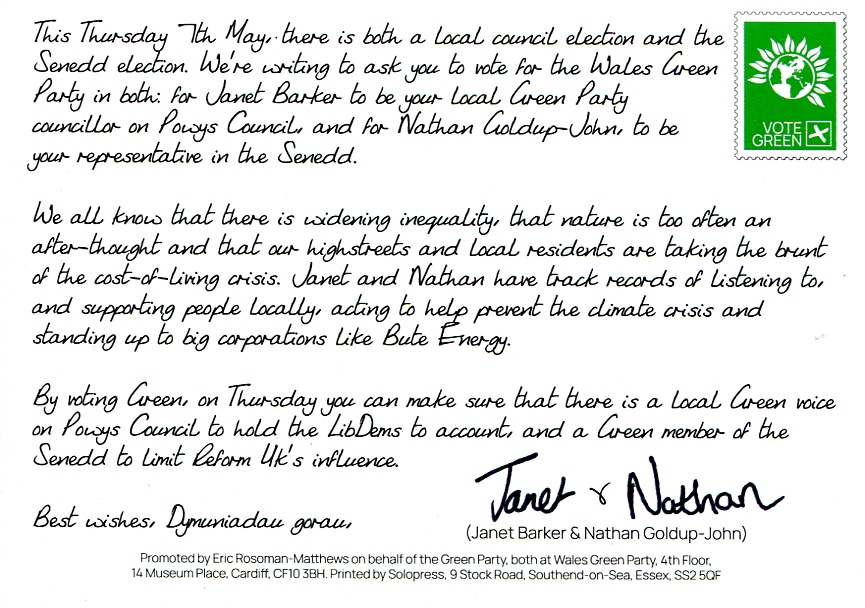 This Thursday 7th May, there is both a local council election and the
Senedd election. We're writing to ask you to vote for the Wales Green
Party in both: for Janet Barker to be your local Green Party
councillor on Powys Council, and for Nathan Goldup-John, to be
your representative in the Senedd.
VOTE
GREEN
We all know that there is widening inequality, that nature is too often an
after-thought and that our highstreets and local residents are taking the brunt
of the cost-of-living crisis. Janet and Nathan have track records of listening to,
and supporting people locally, acting to help prevent the climate crisis and
standing up to big corporations like Bute Energy.
By voting Green, on Thursday you can make sure that there is a local Green voice
on Powys Council to hold the LibDems to account, and a Green member of the
Senedd to limit Reform Uk's influence.
Janet & Nathan
Best wishes, Dymuniadau gorau,
(Janet Barker & Nathan Goldup-John)
Promoted by Eric Rosoman-Matthews on behalf of the Green Party, both at Wales Green Party, 4th Floor,
14 Museum Place, Cardiff, CF10 3BH. Printed by Solopress, 9 Stock Road, Southend-on-Sea, Essex, SS2 5QF